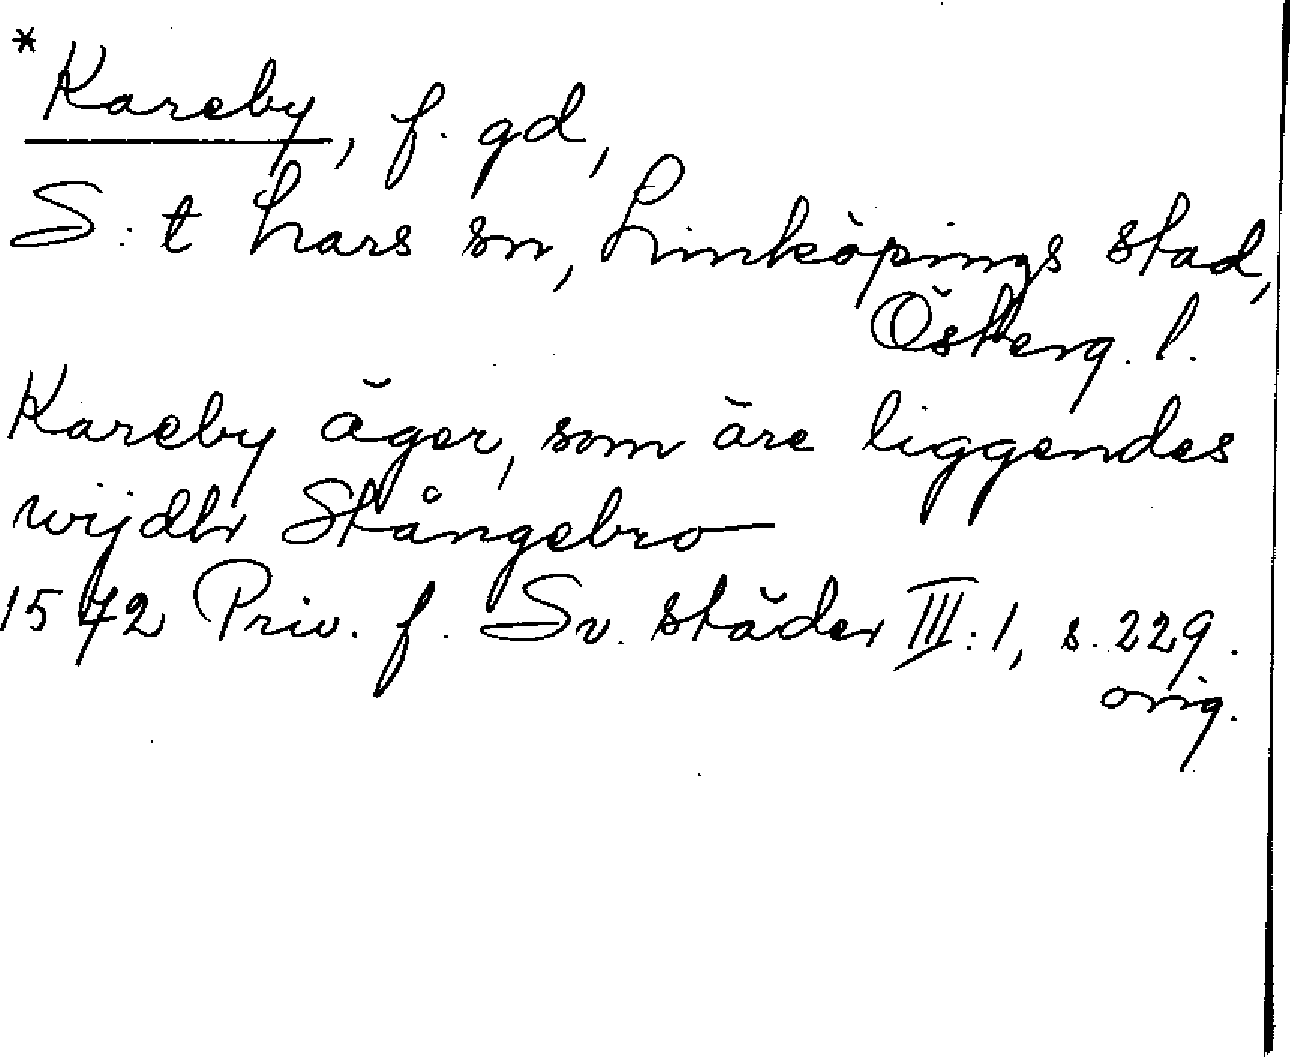 * Kareby, f. gd,
S:t Lars sn, Linköpings stad,
Österg. l.
Kareby äger, som äre liggendes
wijdh Stångebro
1572 Priv. f. Sv. städer III:1, s. 229.
orig.